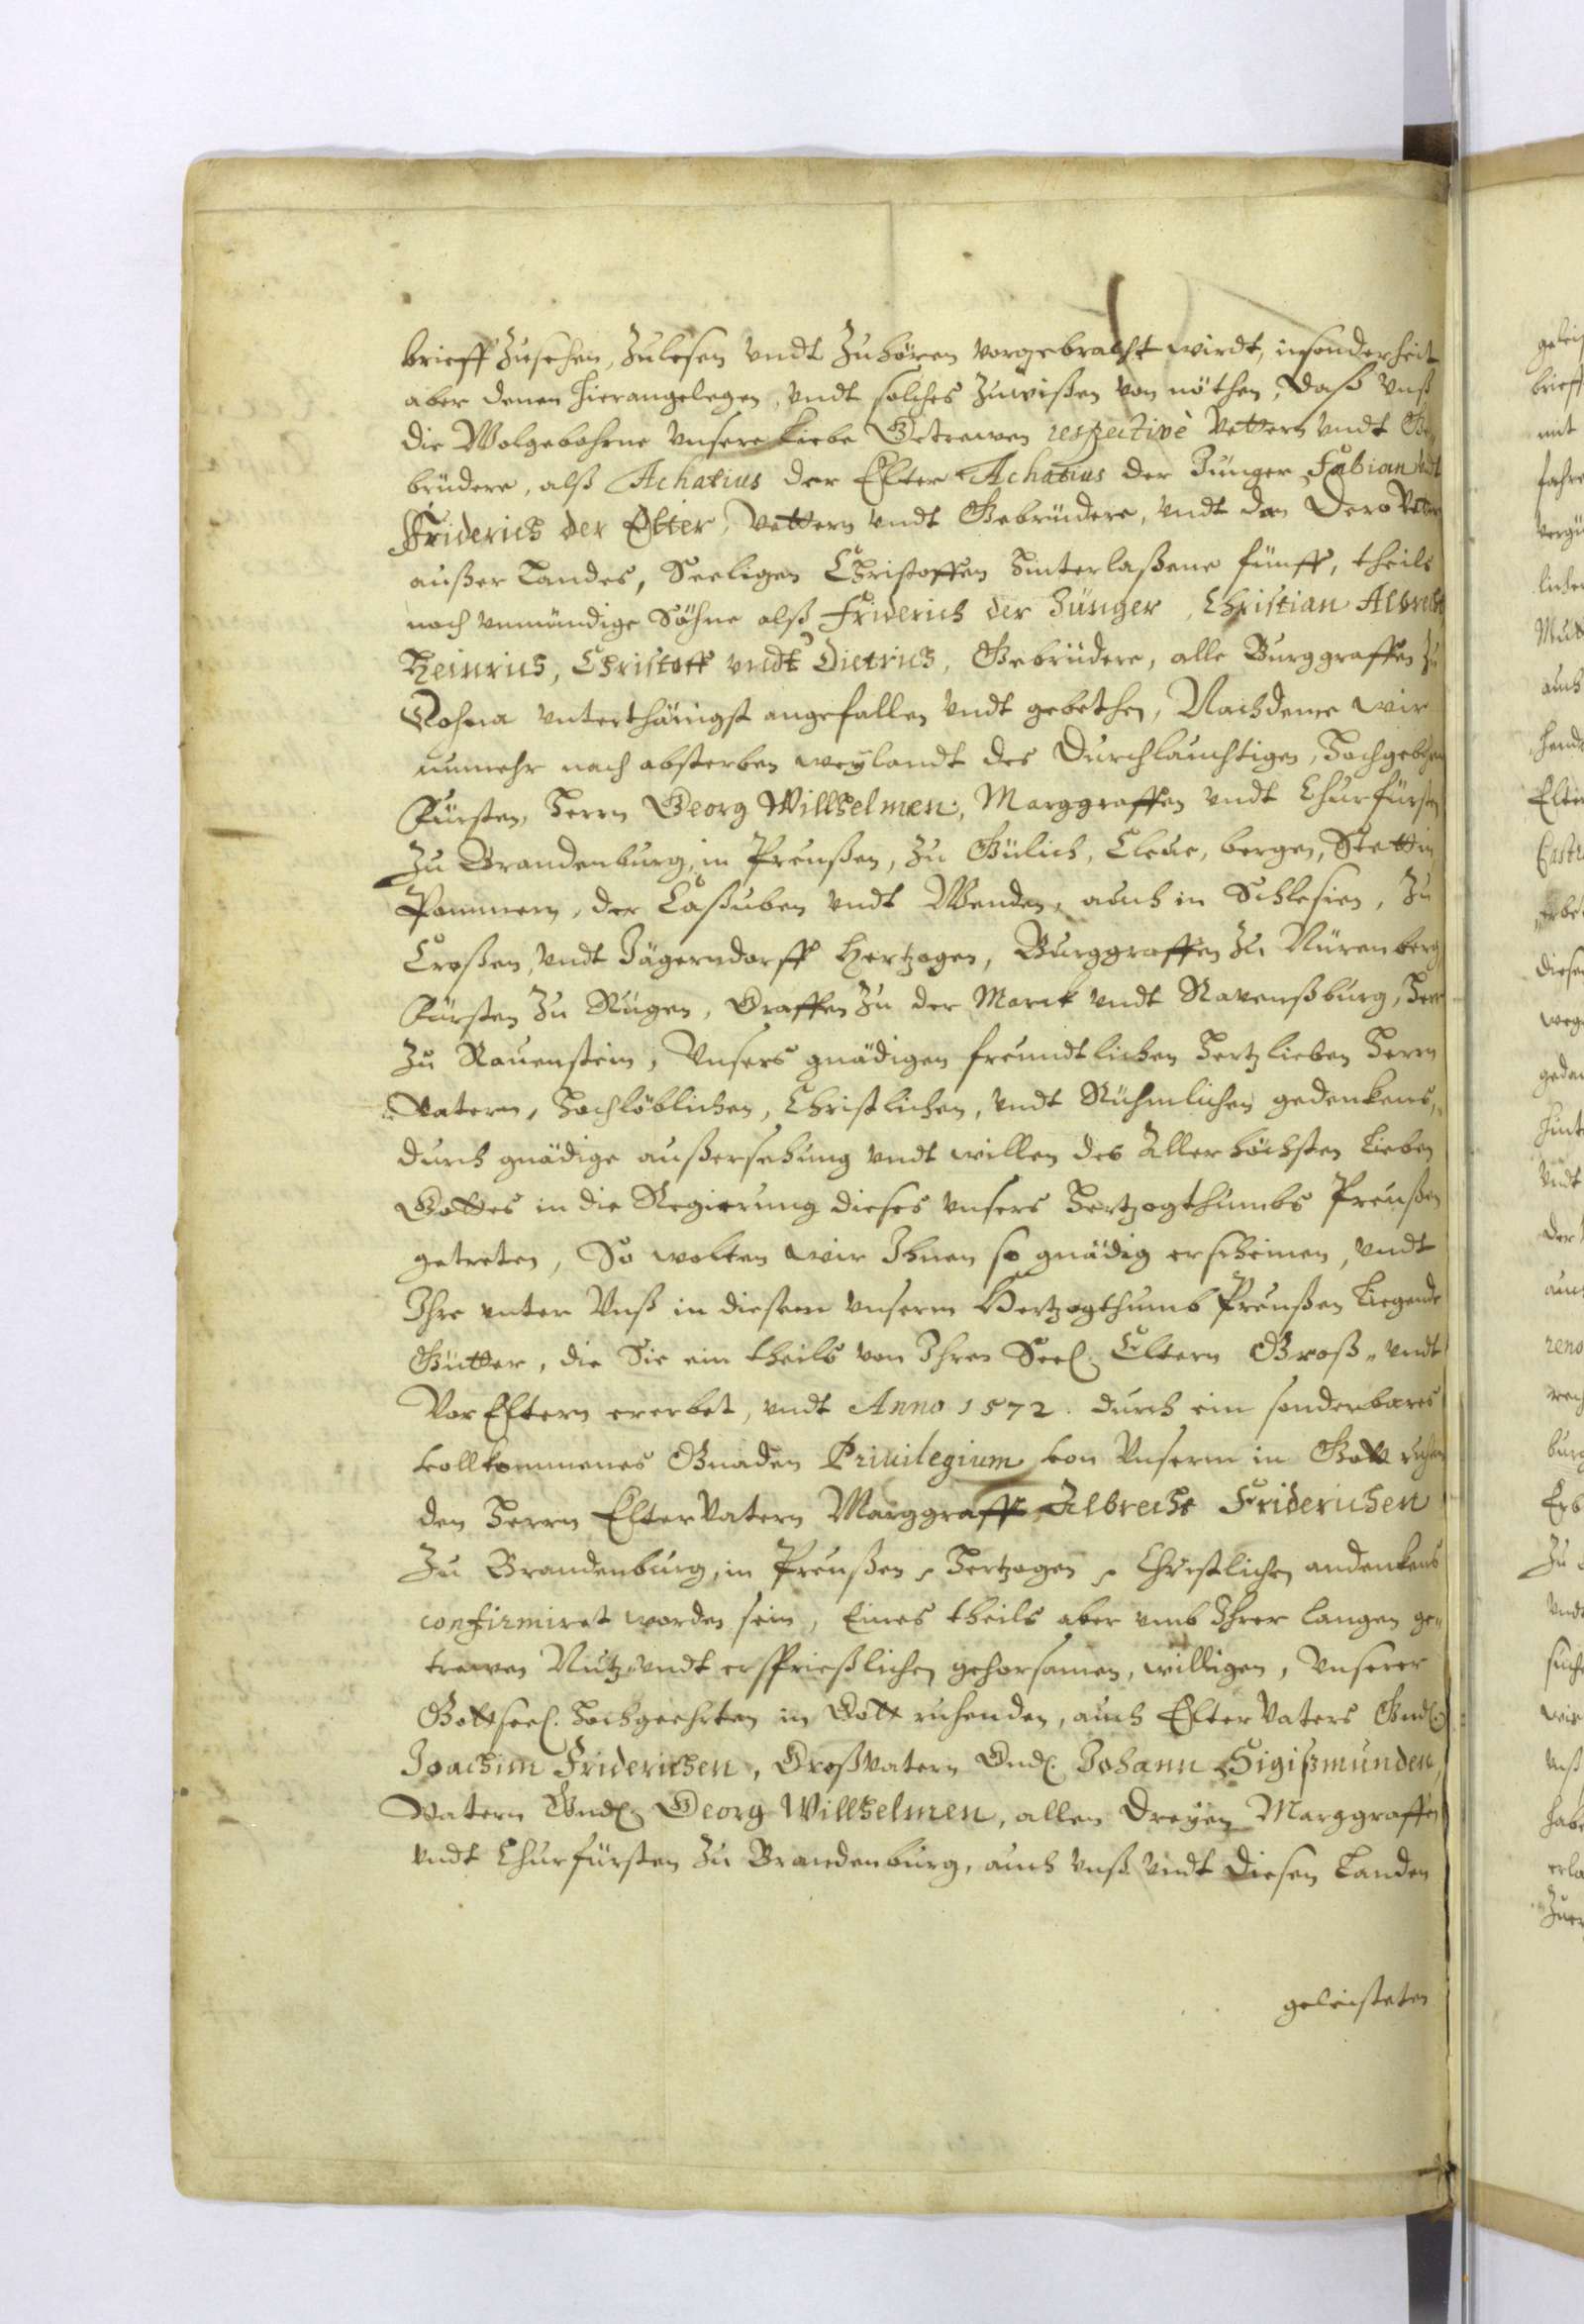 brieff Zusehen, Zulesen vndt Zuhören vorgebracht wirdt, insonderheit
aber denen hierangelegen, vndt solches Zuwißen von nöthen, daß vnß
die Wolgebohrne vnsere Liebe Getrewen respectivè Vettern vndt Ge„
brüdere, alß Achatius der Elter Achatius der Jünger Fabian vndt
Friderich der Elter, Vettern vndt Gebrüdere, vndt dan Dero Vetter
außer Landes, Seeligen Christoffen Hinterlaßene fünff, theils
noch vnmündige Söhne alß Friderich der Jünger, Christian Albrecht
Heinrich, Christoff vndt Dietrich, Gebrüdere, alle Burggraffen zu
Dohna vnterthänigst angefallen vndt gebethen, Nachdeme wir
nunmehr nach absterben weylandt des Durchlauchtigen, Hochgebohrnen
Fürsten, Herrn Georg Willhelmen, Marggraffen vndt Churfürsten
Zu Brandenburg, in Preußen, zu Gülich, Cleue, bergen, Stettin
Pommern, der Caßuben vndt Wenden, auch in Schlesien, Zu
Croßen, vndt Jägerndorff Hertzogen, Burggraffen Zu Nürenberg
Fürsten Zu Rügen, Graffen Zu der Marck vndt Ravenßburg, Herr
Zu Rauenstein, Vnsers gnädigen freundtlichen Hertzlieben Herrn
Vatern, Hochlöblichen, Christlichen, vndt Rühmlichen gedenkens,
durch gnädige außersehung vndt willen des Allerhöchsten Lieben
Gottes in die Regierung dieses vnsers Hertzogthumbs Preußen
getreten, So wolten wir Ihnen so gnädig erscheinen, vndt
Ihre vnter Vnß in diesem vnserm Hertzogthumb Preußen Liegende
Gütter, die Sie ein theils von Ihren Seel. Eltern Groß„ vndt
VorEltern ererbet, vndt Anno 1572. durch ein sonderbares
vollkommenes Gnaden Priuilegium von Vnserm in Gott ruhen
den Herrn ElterVatern Marggraff Albrecht Friderichen
Zu Brandenburg, in Preußen Hertzogen Christlichen andenkens
confirmiret worden sein, Eines theils aber vmb Ihrer langen ge„
trewen Nutz„ vndt ersprießlichen gehorsamen, willigen, Vnserer
Gottseel. Hochgeehrten in Gott ruhenden, auch ElterVaters Gnd.
Joachim Friderichen, Großvatern Gnd. Johann Sigißmunden,
Vatern Gnd. Georg Willhelmen, allen dreyen Marggraffen
vndt Churfürsten Zu Brandenburg, auch Vnß vndt diesen Landen
geleisteten